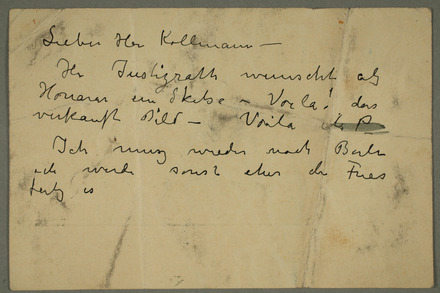 Lieber Herr Kollmann —
Hr Justizrath wunscht als
Honorar ein Skitse — Voila! das
verkauft Bild — Voila
Ich muss wieder nach Berlin
ich werde sonst eher die Fries
fertig is